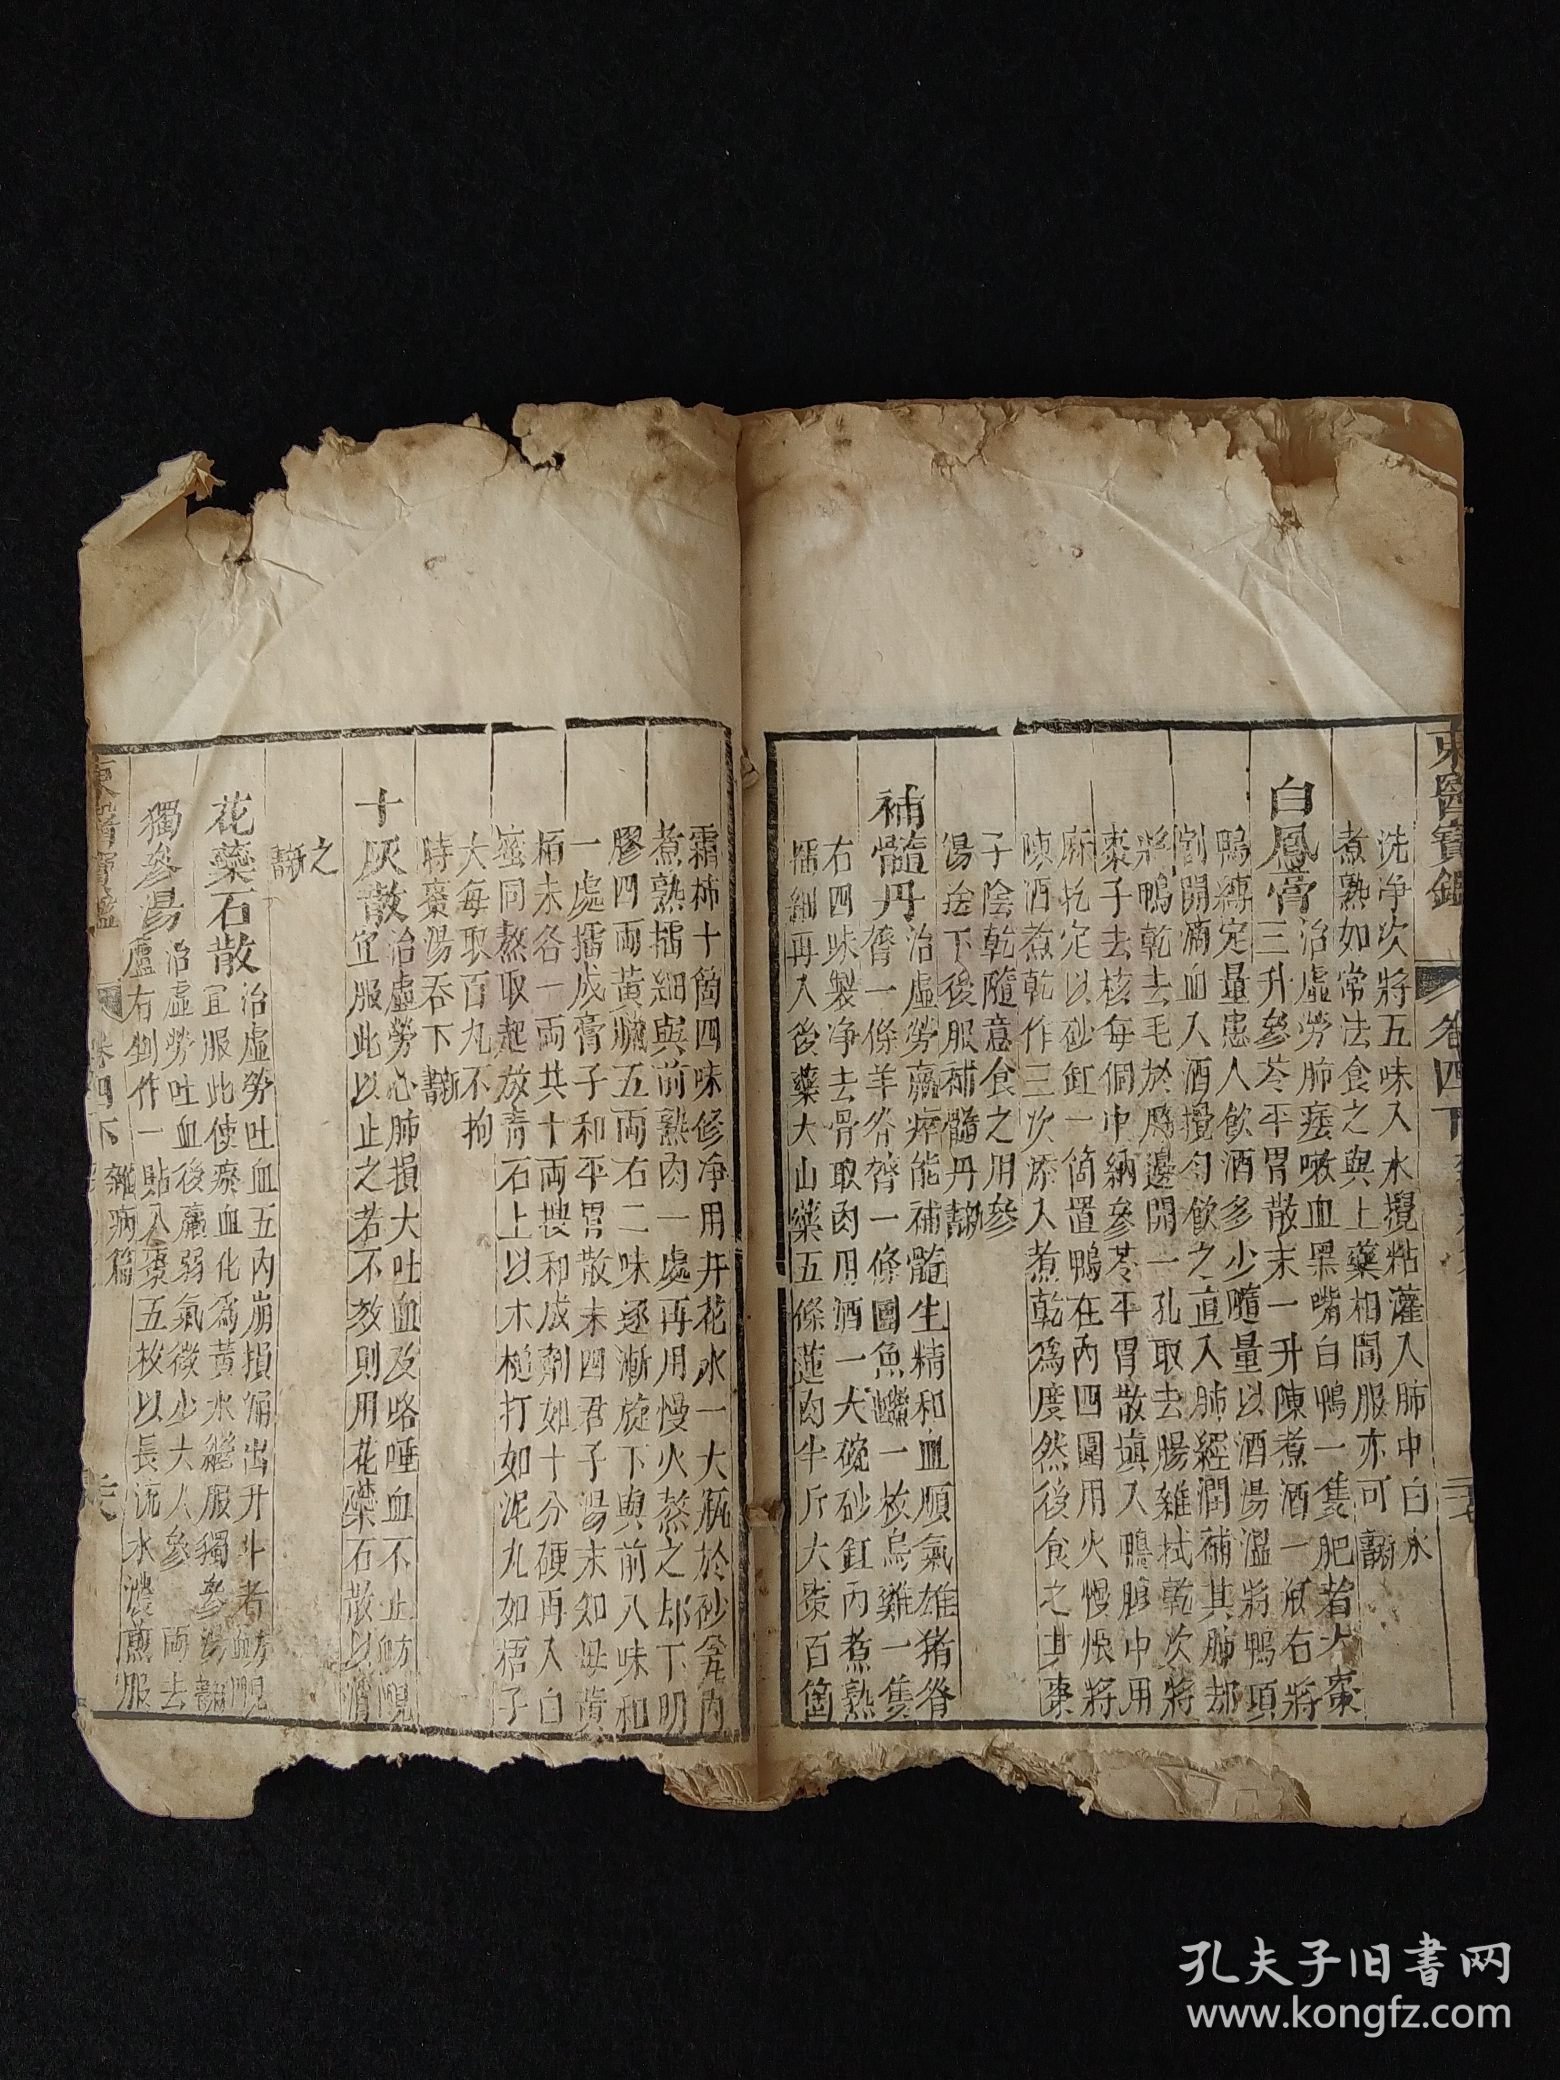 東醫寶鑑 卷四下
洗淨次將五味入水攪粘灌入肺中白水
煮熟如常法食之與上藥相間服亦可
白鳳膏
治虛勞肺痿嗽血黑嘴白鴨一隻肥者大棗
三升參苓平胃散末一升陳煮酒一瓶右將
鴨縛定量患人飲酒多少隨量以酒湯溫將鴨項
割開滴血入酒攪勻飮之直入肺經潤補其肺却
將鴨乾去毛於脇邊開一孔取去腸雜拭乾次將
棗子去核每個中納參苓平胃散塡入鴨肚中用
麻扎定以砂缸一箇置鴨在內四圍用火慢煨將
陳酒煮乾作三次添入煮乾爲度然後食之其棗
子陰乾隨意食之用參
湯送下後服補髓丹
補髓丹
治虛勞羸瘁能補髓生精和血順氣雄猪脊
膂一條羊脊膂一條團魚一枚烏雞一隻
右四味製淨去骨取肉用酒一大碗砂缸內煮熟
擂細再入後藥大山藥五條蓮肉半斤大棗百箇
霜柿十箇四味修淨用井花水一大瓶於砂瓮內
煮熟擂細與前熟肉一處再用慢火熬之却下明
膠四兩黃臘五兩右二味逐漸旋下與前八味和
一處擂成膏子和平胃散末四君子湯末知母黃
栢末各一兩共十兩搜和成劑如十分硬再入白
蜜同熬取起放靑石上以木槌打如泥丸如梧子
大每取百丸不拘
時棗湯吞下
十灰散
治虛勞心肺損大吐血及咯唾血不止
宜服此以止之若不效則用花蘂石散以消
之
花蘂石散
治虛勞吐血五內崩損涌出升斗者
宜服此使瘀血化爲黃水繼服獨參湯
獨參湯
治虛勞吐血後羸弱氣微少大人參 兩去
蘆右剉作一貼入棗五枚以長流水濃煎服
東醫寶鑑 卷四下 雜病篇
孔夫子旧书网
www.kongfz.com